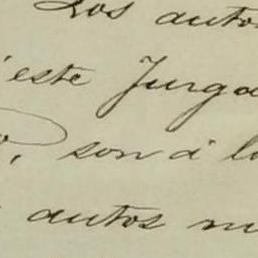 Los autos
este Juzga
son á lo
autos